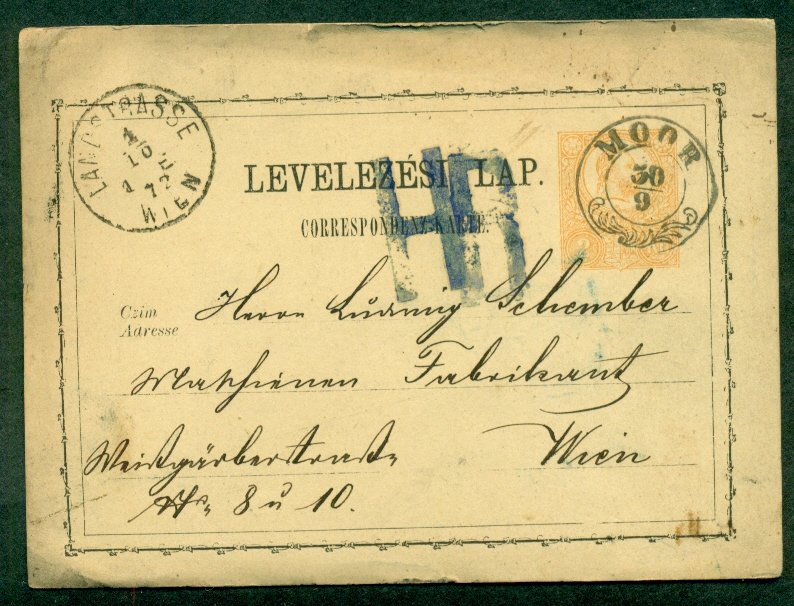 LANDSTRASSE
1
10
1 E
72
WIEN
MOOR
30
9
LEVELEZÉSI LAP.
CORRESPONDENZ-KARTE.
Czim
Adresse
Herrn Ludwig Schember
Maschienen Fabrikant
Weisgärberstrasse Wien
No. 8 u 10.